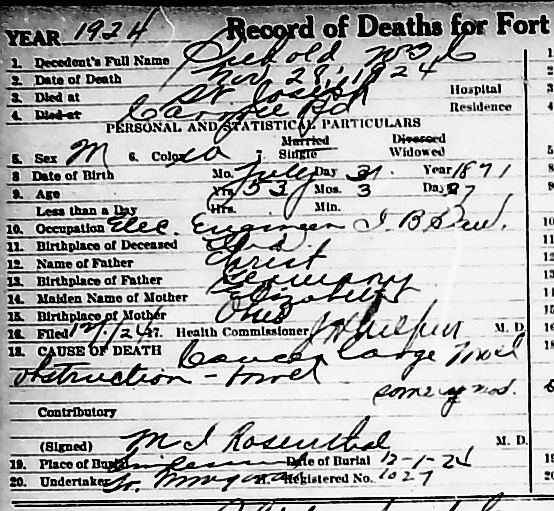 YEAR 1924 Record of Deaths for Fort
1. Decedent's Full Name
2. Date of Death Nov. 28, 1924
3. Died at St. Joseph Hospital
4. Died at Residence
PERSONAL AND STATISTICAL PARTICULARS
Married Divorced
5. Sex M 6. Color W 7. Single Widowed
8 Date of Birth Mo. July Day 31 Year 1871
9. Age Yrs. 53 Mos. 3 Days 27
Less than a Day Hrs. Min.
10. Occupation Elec. Engineer
11. Birthplace of Deceased Ind
12. Name of Father Christ
13. Birthplace of Father Germany
14. Maiden Name of Mother Elizabeth
15. Birthplace of Mother Ohio
16. Filed 12/1/24 17. Health Commissioner M. D.
18. CAUSE OF DEATH Cancer large
obstruction - bowel
some mod.
Contributory
(Signed) M I Rosenthal M. D.
19. Place of Burial Date of Burial 12-1-24
20. Undertaker Registered No. 1027